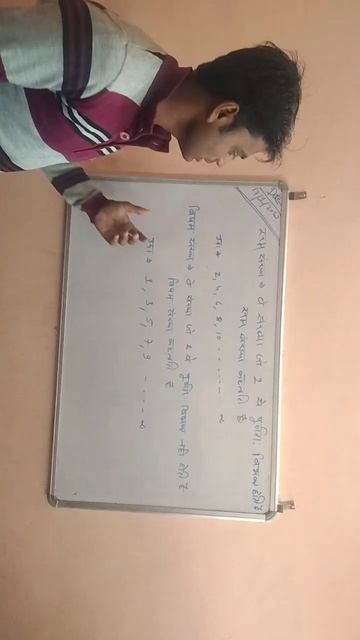 सम संख्या → वे संख्या जो 2 से पूर्णतः विभक्त होती है
सम संख्या कहलाती है
जैसे → 2, 4, 6, 8, 10 - - - - - - ∝
विषम संख्या → वे संख्या जो 2 से पूर्णतः विभक्त नहीं होती है
विषम संख्या कहलाती है
जैसे → 1, 3, 5, 7, 9 - - - - - ∝